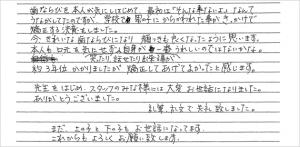 歯ならびを本人が気にしはじめ 最初は"そんな事ないよ"なんて
うながしてたのですが、学校で男子にからかわれた事がきっかけで
矯正する決意をしました。
今、きれいな歯ならびになり 顔つきも良くなったように思います。
本人も口元を気にせず人前で
笑ったり話せたり出来るから
約3年位かかりましたが矯正してあげてよかったと感じます。
先生をはじめ、スタッフのみな様には大変お世話になりました。
ありがとうございました。
乱筆、乱文で失礼致しました。
まだ、上の子と下の子もお世話になってます。
これからもよろしくお願い致します。